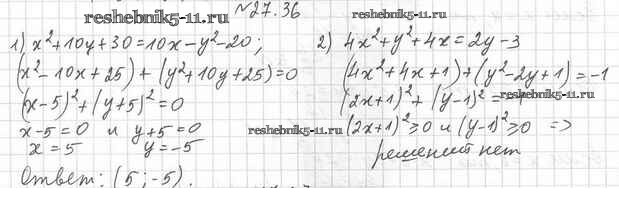 №27.36
reshebnik5-11.ru
reshebnik5-11.ru
1) x²+10y+30=10x-y²-20;
(x²-10x+25)+(y²+10y+25)=0
(x-5)²+(y+5)²=0
x-5=0 и y+5=0
x=5 y=-5
Ответ: (5;-5).
2) 4x²+y²+4x=2y-3
(4x²+4x+1)+(y²-2y+1)=-1
(2x+1)²+(y-1)²=-1
reshebnik5-11.ru
(2x+1)²≥0 и (y-1)²≥0 =>
решений нет
reshebnik5-11.ru